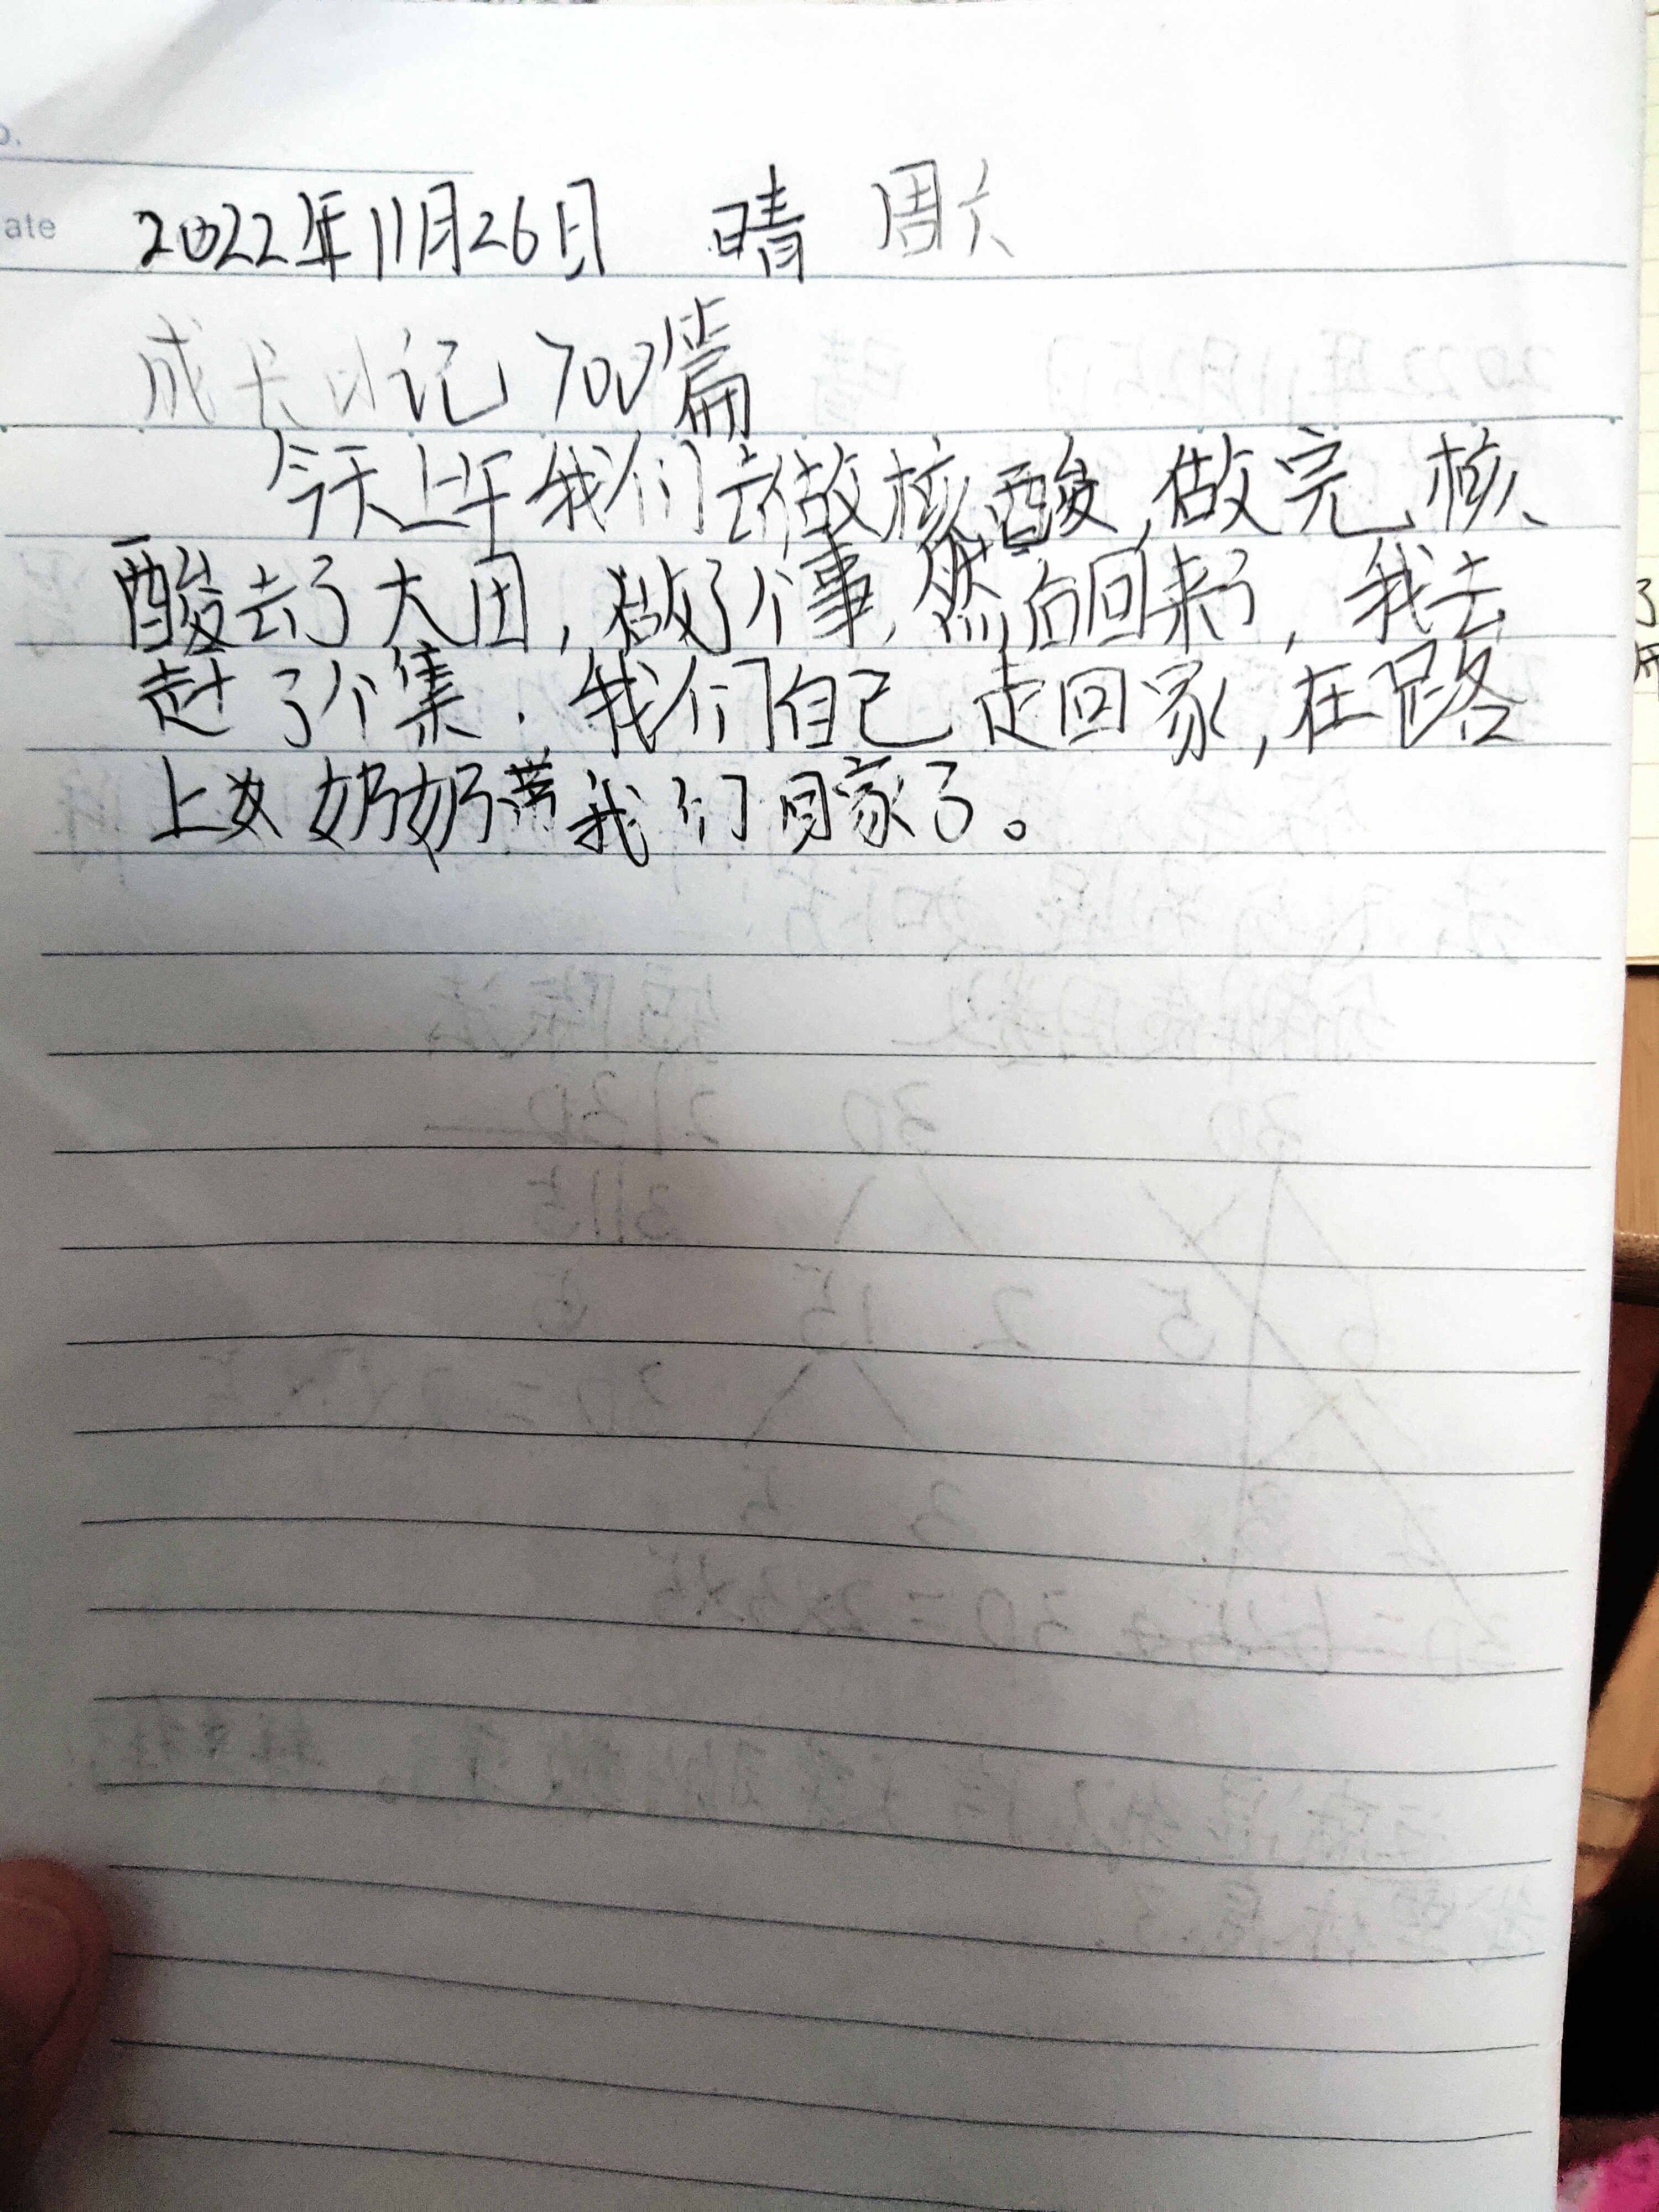 o.
ate 2022年11月26日 晴 周六
成长日记700篇
今天上午我们去做核酸,做完核
酸去了大团,做了个事,然后回来了,我去
赶了个集.我们自己走回家,在路
上奶奶带我们回家了。